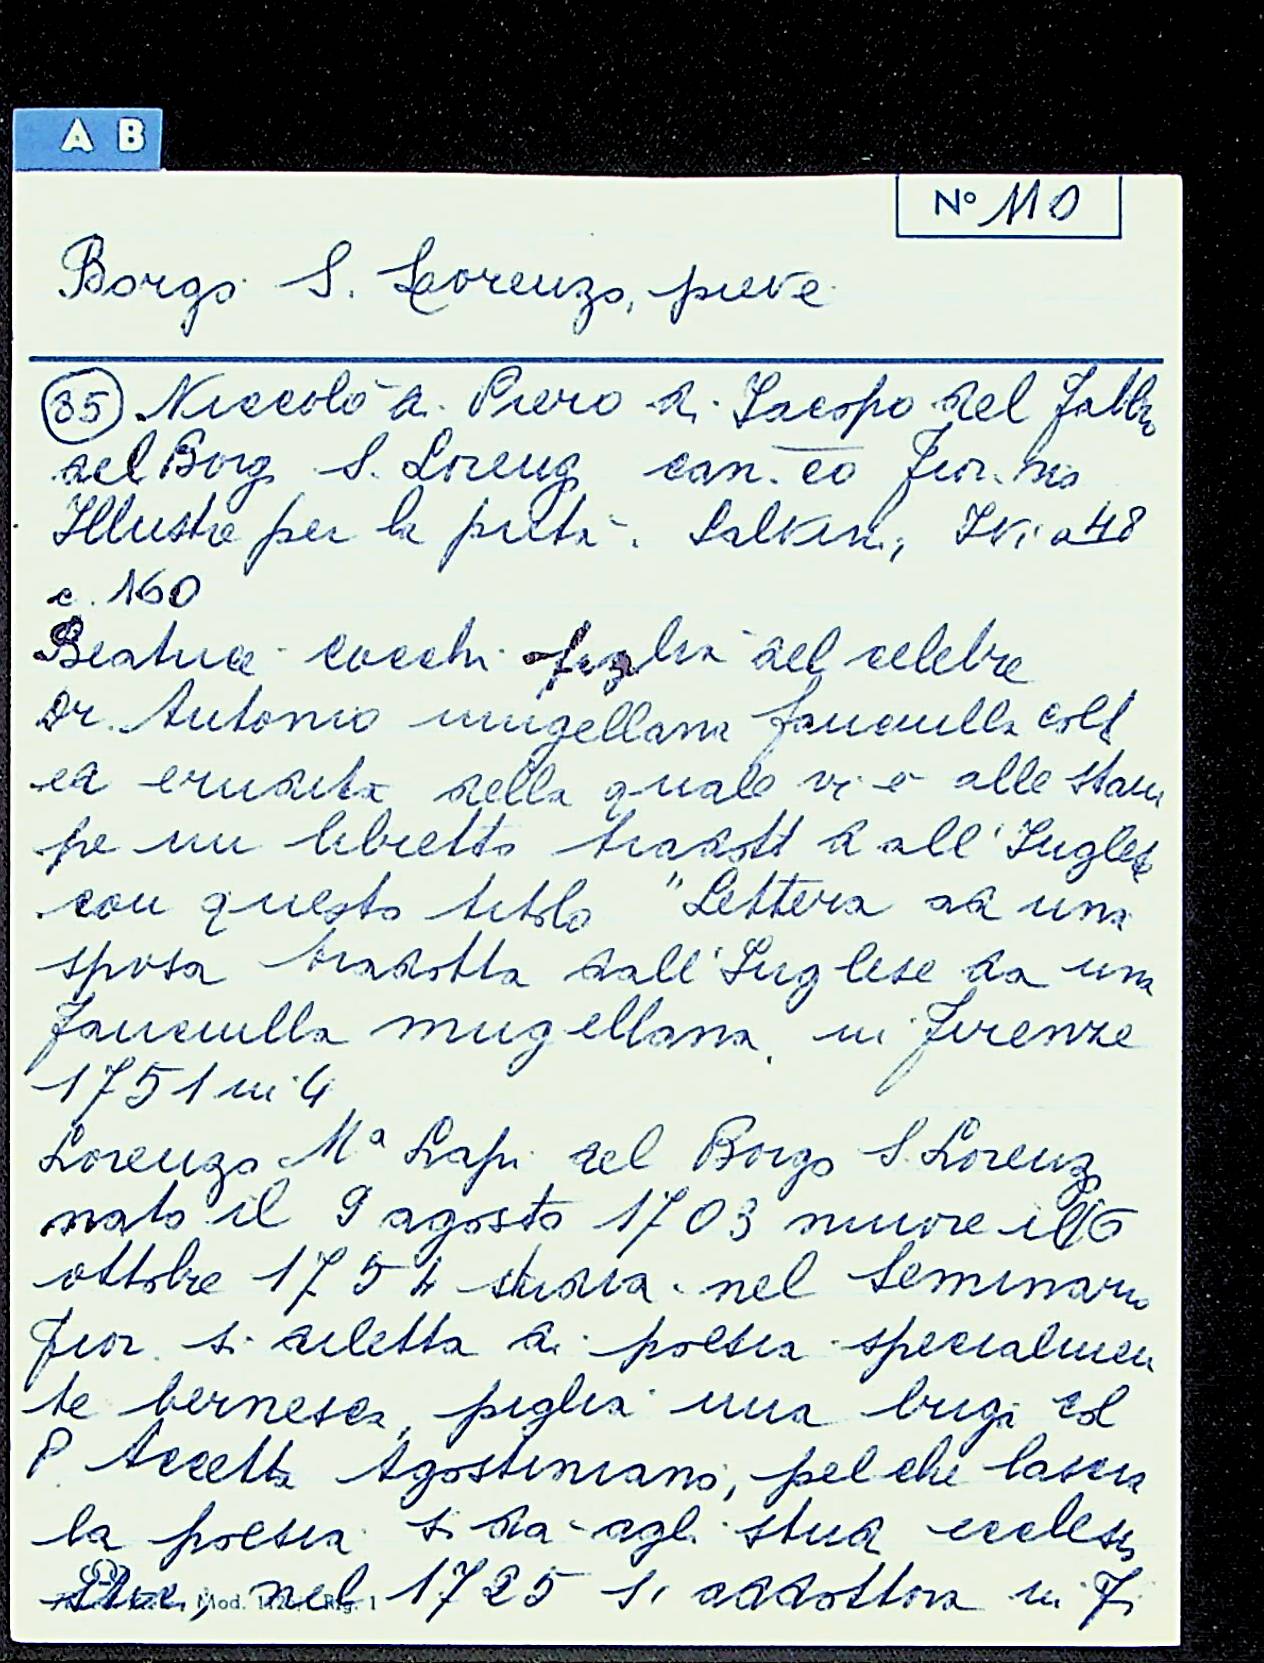 A B
N° 110
Borgo S. Lorenzo, pieve
35 Niccolò di Piero di Jacopo del Fabbro
del Borgo S. Lorenzo can.co Fior.no
Illustre per la pietà. Salvini, IVi a 48
c. 160
Beatrice Cocchi figlia del celebre
Dr. Antonio mugellana fanciulla colt
ed erudita della quale vi è alle stam
pe un libretto tradott dall'Inglese
con questo titolo "Lettera ad una
sposa tradotta dall'Inglese da una
fanciulla mugellana, in Firenze
1751 in 4
Lorenzo Mª Lapi del Borgo S. Lorenzo
nato il 9 agosto 1703 muore il 16
ottobre 1754 studia nel Seminario
Fior. si diletta di poesia specialmen
te bernesca, piglia una briga col
P Accetta Agostiniano, pel che lascia
la poesia si da agli stud ecclesia
nel 1725 si addottora in Fi
Mod.
1